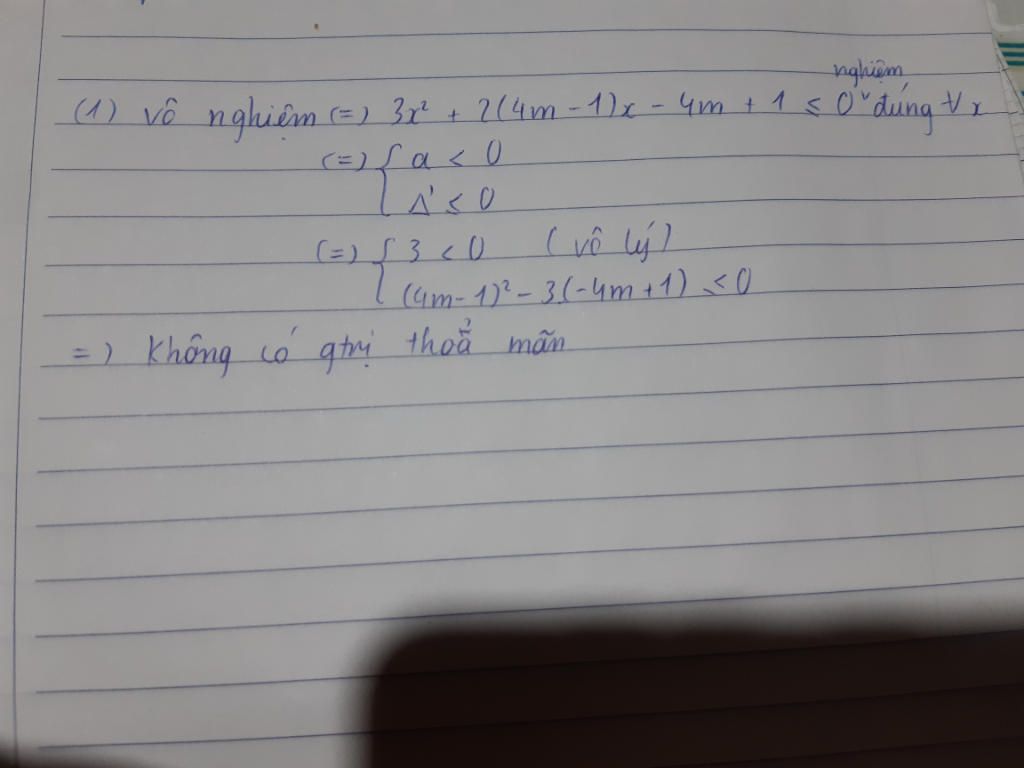 nghiệm
(1) vô nghiệm (=) 3x² + 2(4m - 1)x - 4m + 1 ≤ 0 ˅ đúng ∀x
(=) { a < 0
Δ' ≤ 0
(=) { 3 < 0 (vô lý)
(4m-1)² - 3(-4m+1) ≤ 0
=) Không có gtrị thoả mãn